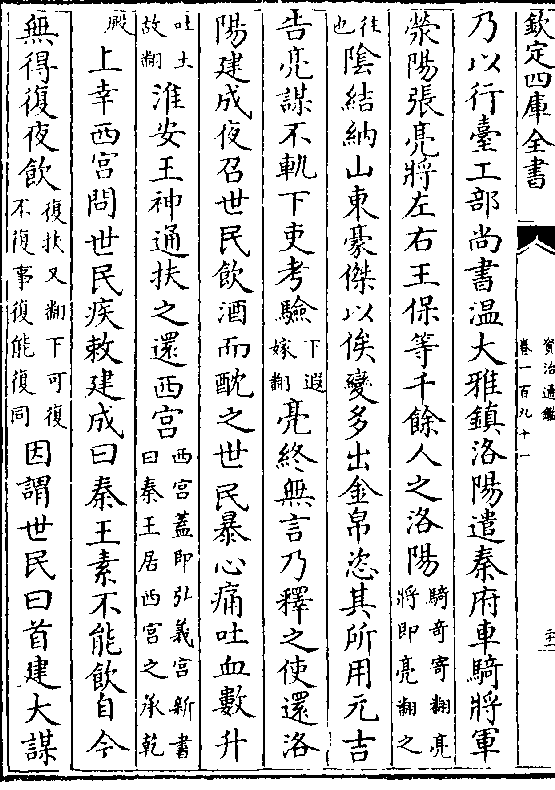 欽定四庫全書
資治通鑑
卷一百九十一
乃以行臺工部尚書温大雅鎮洛陽遣秦府車騎將軍
滎陽張亮將左右王保等千餘人之洛陽騎奇寄翻亮將即亮翻之
往也陰結納山東豪傑以俟變多出金帛恣其所用元吉
告亮謀不軌下吏考驗下遐嫁翻亮終無言乃釋之使還洛
陽建成夜召世民飲酒而酖之世民暴心痛吐血數升
吐土故翻淮安王神通扶之還西宮西宮蓋即弘義宮新書曰秦王居西宮之承乾
殿上幸西宮問世民疾敕建成曰秦王素不能飲自今
無得復夜飲復扶又翻下可復不復事復能復同因謂世民曰首建大謀